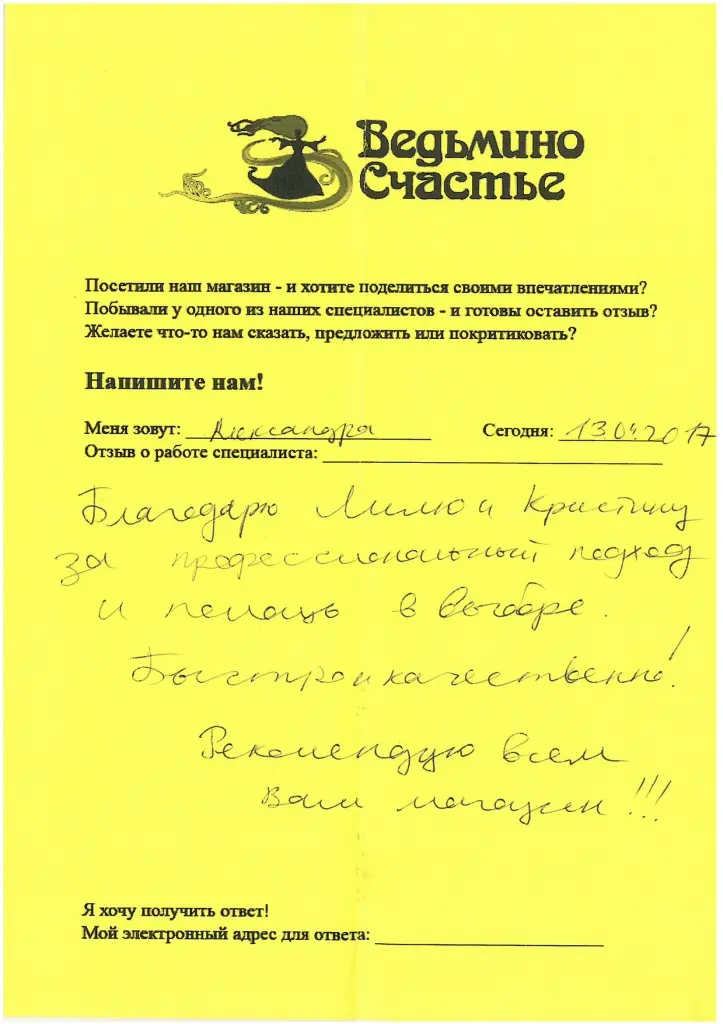 Ведьмино
Счастье
Посетили наш магазин - и хотите поделиться своими впечатлениями?
Побывали у одного из наших специалистов - и готовы оставить отзыв?
Желаете что-то нам сказать, предложить или покритиковать?
Напишите нам!
Меня зовут: Александра Сегодня: 13.04.2017
Отзыв о работе специалиста:
Благодарю Лилю и Кристину
за профессиональный подход
и помощь в выборе.
Быстро и качественно!
Рекомендую всем
Ваш магазин!!!
Я хочу получить ответ!
Мой электронный адрес для ответа: